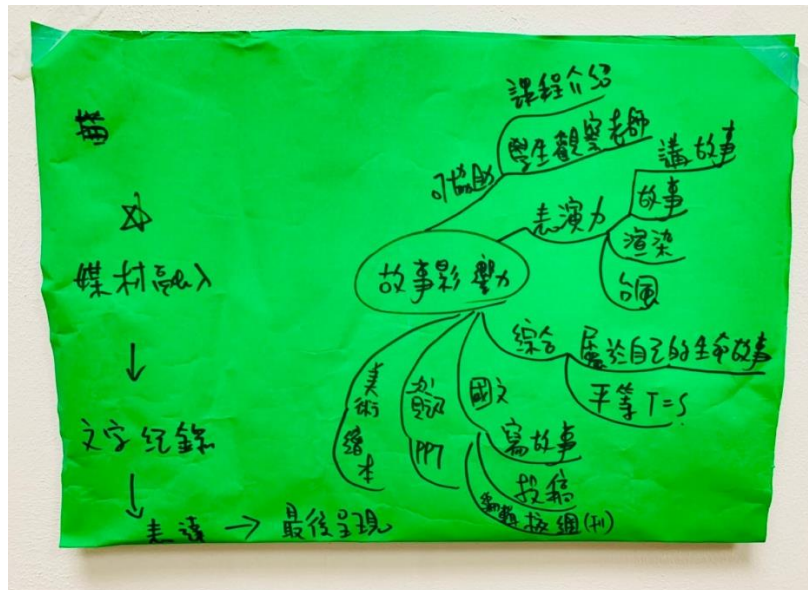 媒材融入
文字紀錄
表達 → 最後呈現
故事影響力
協助
課程介紹
學生觀察老師
表演力
講故事
故事
渲染
台風
綜合
屬於自己的生命故事
平等 T=S
國文
寫故事
投稿
校網(刊)
資訊
PPT
美術
繪本